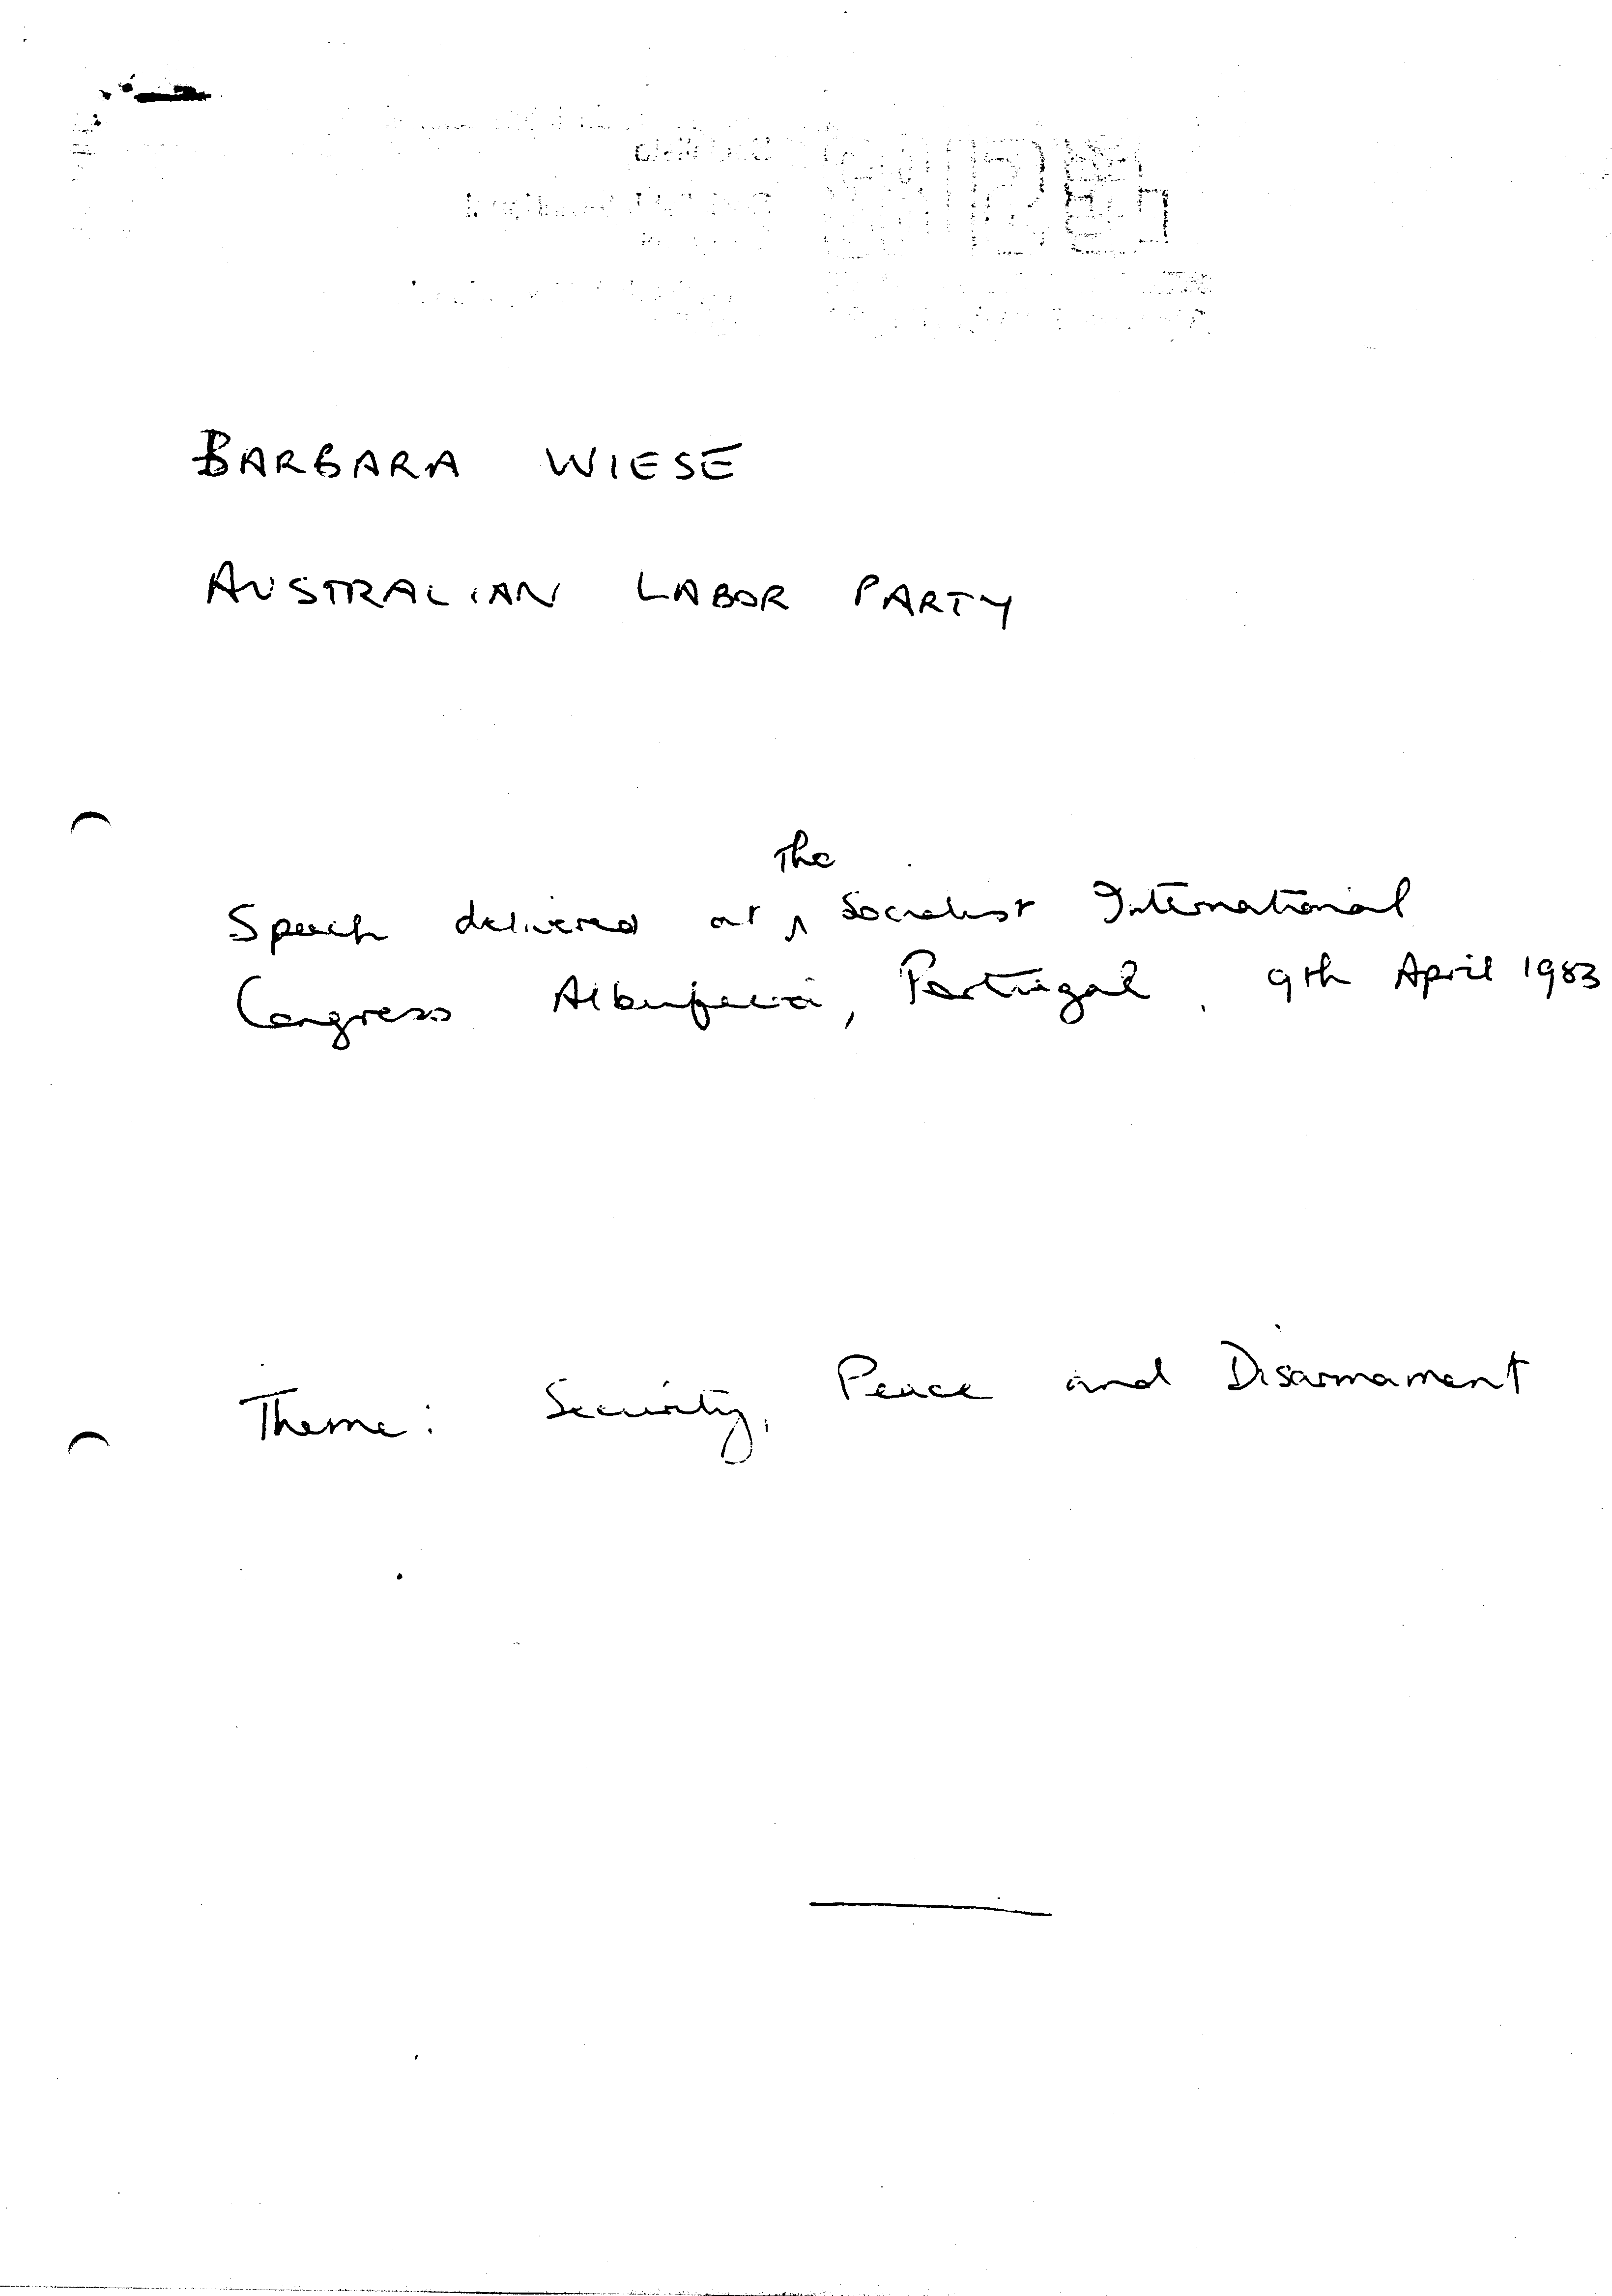 BARBARA WIESE
AUSTRALIAN LABOR PARTY
Speech delivered at the Socialist International
Congress Albufeira, Portugal, 9th April 1983
Theme: Security, Peace and Disarmament